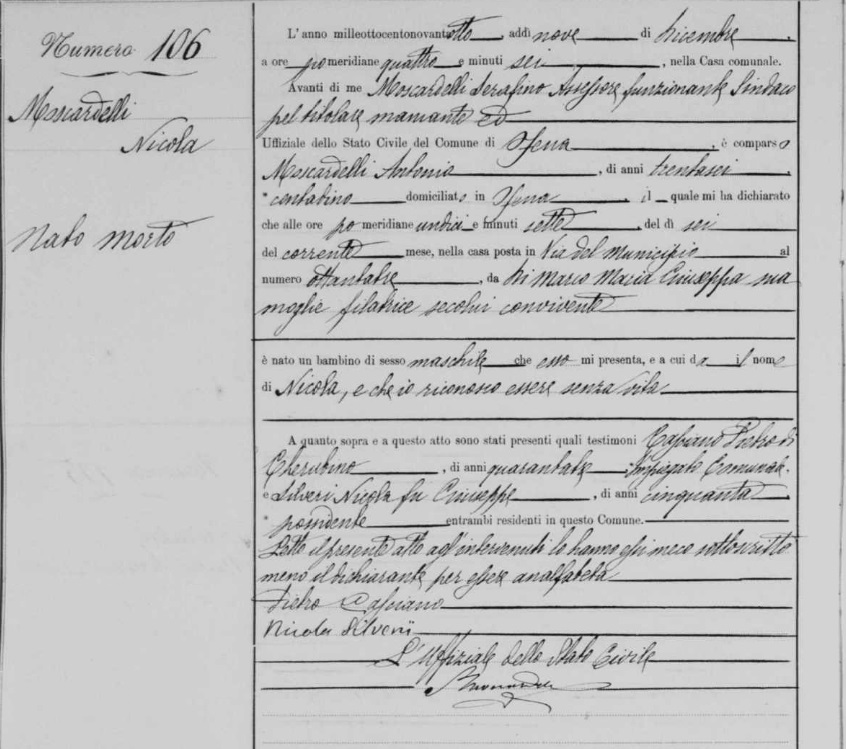 Numero 106
Moscardelli
Nicola
Nato morto
L'anno milleottocentonovantotto, addì nove di Dicembre,
a ore pomeridiane quattro e minuti sei, nella Casa comunale.
Avanti di me Moscardelli Serafino Assessore funzionante Sindaco
pel titolare mancante ed
Uffiziale dello Stato Civile del Comune di Ofena, è comparso
Moscardelli Antonio, di anni trentasei
contadino domiciliato in Ofena, il quale mi ha dichiarato
che alle ore pomeridiane undici e minuti sette, del dì sei
del corrente mese, nella casa posta in Via del Municipio al
numero ottantatre, da Di Marco Maria Giuseppa sua
moglie filatrice secolui convivente
è nato un bambino di sesso maschile che esso mi presenta, e a cui dà il nome
di Nicola, e che io riconosco essere senza vita
A quanto sopra e a questo atto sono stati presenti quali testimoni Casciano Pietro di
Cherubino, di anni quarantatre, Impiegato Comunale,
e Silveri Nicola fu Giuseppe, di anni cinquanta,
possidente entrambi residenti in questo Comune.
Letto il presente atto agl'intervenuti lo hanno essi meco sottoscritto
meno il dichiarante per essere analfabeta
Pietro Casciano
Nicola Silveri
L'Uffiziale dello Stato Civile